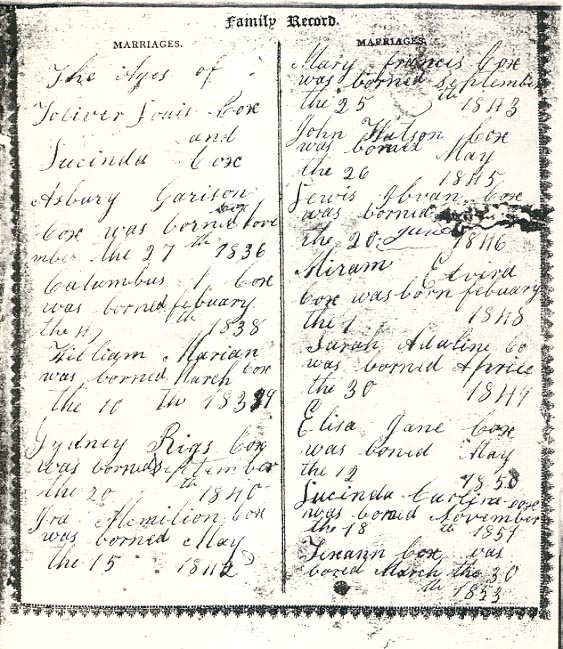 Family Record.
MARRIAGES.
The Ages of
Toliver Louis Cox
and
Lucinda Cox
Asbury Garison
Cox was borned
mber the 27th 1836
Columbus Cox
was borned febuary
the th 1838
William Marian
was borned March Cox
the 10 th 1839
Sydney Rigs Cox
was borned September
the 20th 1840
Ira Cox
was borned May
the 15 1842
MARRIAGES.
Mary Francis Cox
was borned September
the 25th 1843
John Watson Cox
was borned May
the 26 1845
Lewis Cox
was borned
the 20 June 1846
Miram
Cox was born febuary
the 1 1848
Sarah Adaline Co
was borned
the 30 1849
Elisa Jane Cox
was boned May
the 12 1850
Lucinda Carline Cox
was boned November
the 18th 1851
Cox was
boned March the 30
th 1853